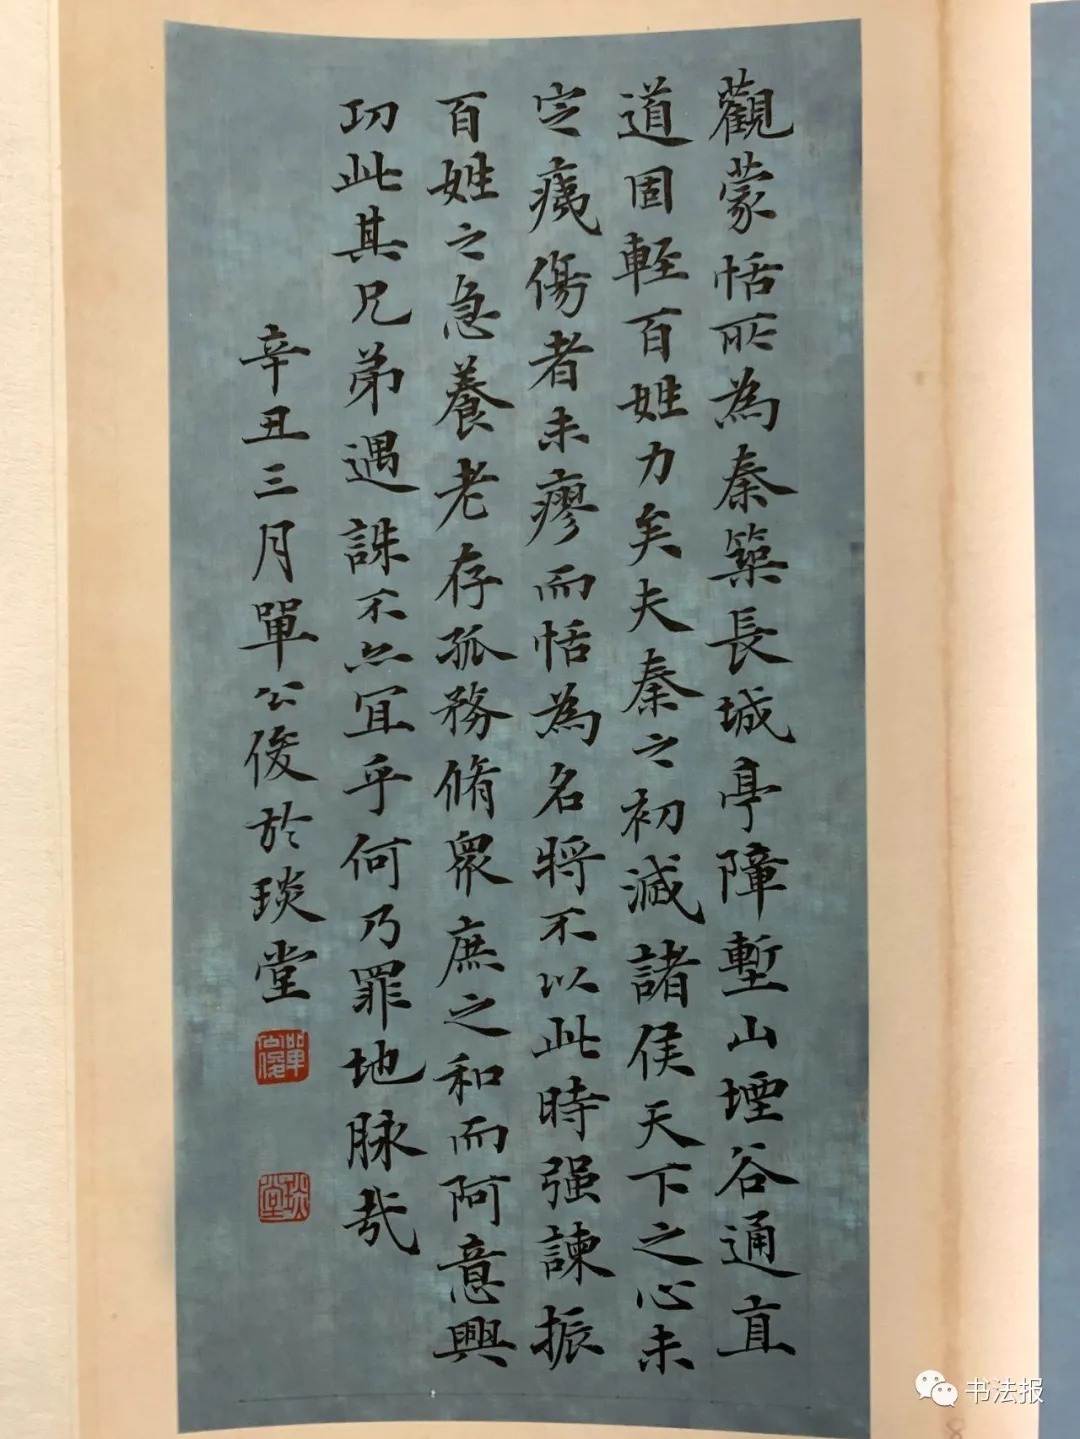 觀蒙恬所為秦築長城亭障塹山堙谷通直
道固輕百姓力矣夫秦之初滅諸侯天下之心未
定痍傷者未瘳而恬為名將不以此時强諫振
百姓之急養老存孤務脩眾庶之和而阿意興
功此其兄弟遇誅不亦宜乎何乃罪地脉哉
辛丑三月單公俊於琰堂
單公俊
琰堂
书法报